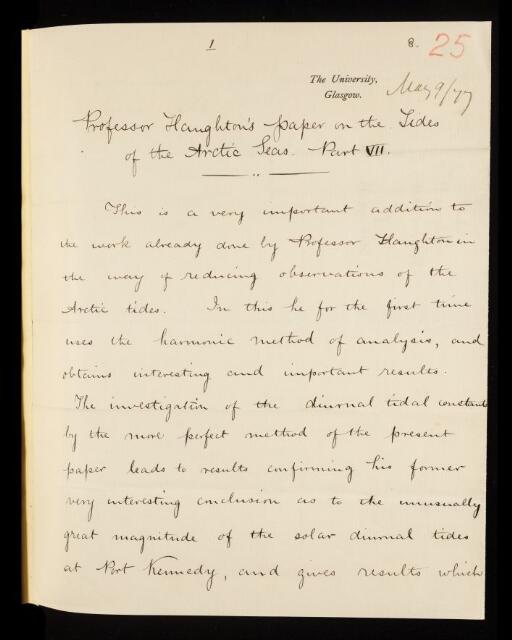 1
8.
25
The University,
Glasgow.
May 9/77
Professor Haughton's paper on the Tides
of the Arctic Seas. Part VII.
This is a very important addition to
the work already done by Professor Haughton in
the way of reducing observations of the
Arctic tides. In this he for the first time
uses the harmonic method of analysis, and
obtains interesting and important results.
The investigation of the diurnal tidal constants
by the more perfect method of the present
paper leads to results confirming his former
very interesting conclusion as to the unusually
great magnitude of the solar diurnal tides
at Port Kennedy, and gives results which